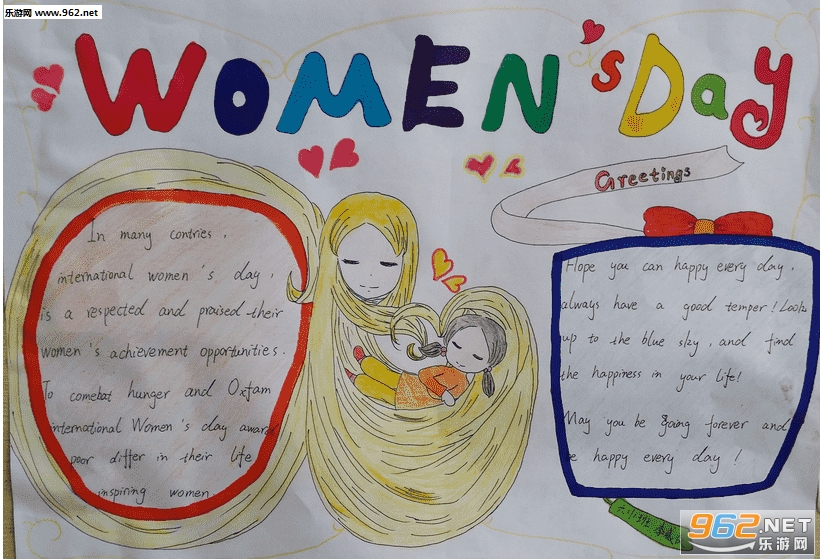 乐游网 www.962.net
WOMEN'S Day
Greetings
In many contries,
international women's day,
is a respected and praised their
women's achievement opportunities.
To comebat hunger and Oxfam
international Women's day award
poor differ in their life
inspiring women
Hope you can happy every day,
always have a good temper! Look
up to the blue sky, and find
the happiness in your life!
May you be going forever and
be happy every day!
六
班
962.NET
乐游网